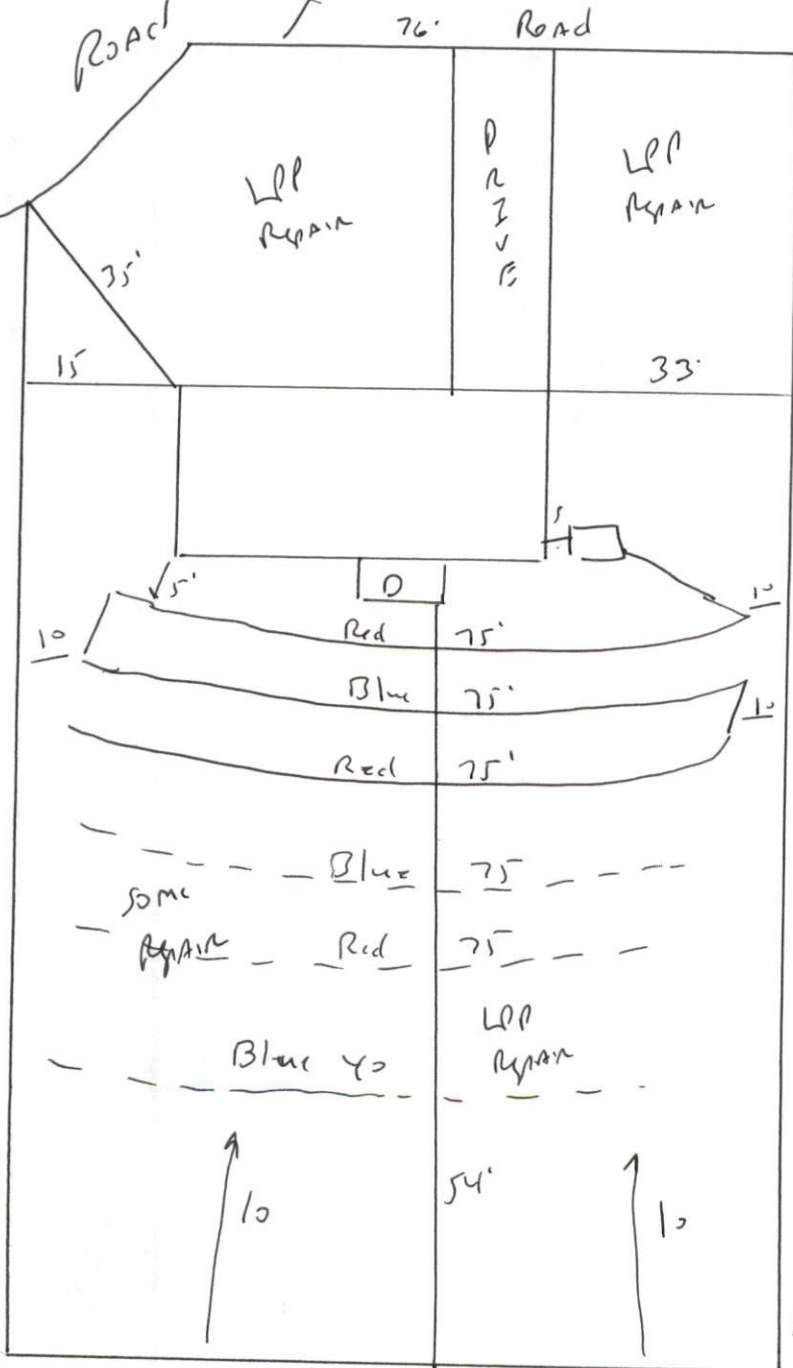 Road
76'
Road
LPP
Repair
DRIVE
LPP
Repair
35'
15
33'
5
5'
D
10
10
Red 75'
Blue 75'
10
Red 75'
Blue 75
Some
Repair
Red 75
LPP
Repair
Blue 40
54'
10
10